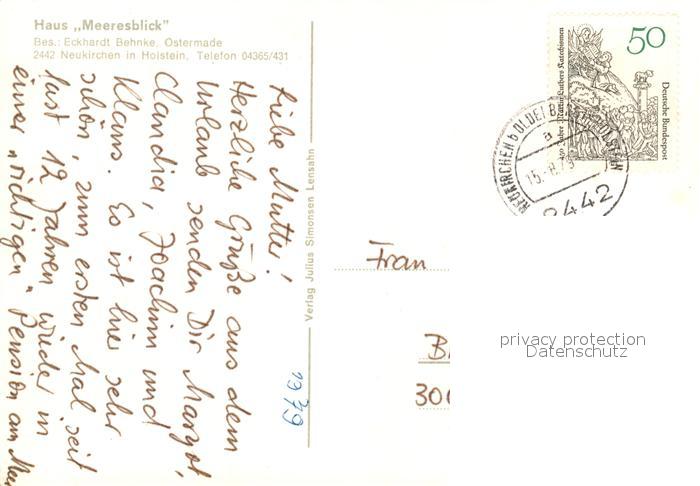 Haus „Meeresblick"
Bes.: Eckhardt Behnke, Ostermade
2442 Neukirchen in Holstein, Telefon 04365/431
Liebe Mutter!
Herzliche Grüße aus dem
Urlaub senden Dir Margot,
Claudia, Joachim und
Klaus. Es ist hier sehr
schön, zum ersten Mal seit
fast 12 Jahren wieder in
einer „richtigen" Pension am
Verlag Julius Simonsen Lensahn
1979
50
Deutsche Bundespost
450 Jahre Martin Luthers Katechismen
NEUKIRCHEN b OLDENBURG HOLSTEIN
a
15.-8.79
2442
Frau
B
300
privacy protection
Datenschutz